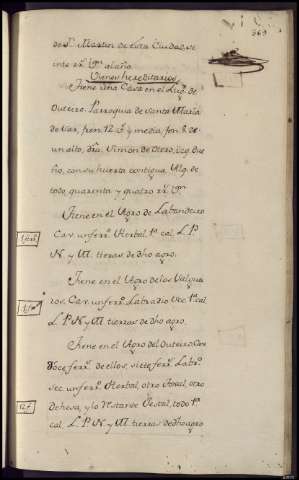 569
de Sn. Martin de esta Ciudad, ve
inte rs. vn. al año.
Vienes hereditarios
Tiene Una Casa en el Lugr. de
Outeiro, Parroquia de Santa Maria
de Car, fren. 12 vs. y media, fon. 8. de
un alto, dra. Simon de Otero, izq. Due
ño, con su huerta contigua, Alq. de
todo, quarenta y quatro rs. vn.
Tiene en el Agro de Labandeiro
Car. un ferro. Herbal, 1a. cal. L. P.
N. y M. tierras de dho agro.
Tiene en el Agro de los
ros, Car. un ferro. Labradio sec. 1a. cal.
L. P. N. y M. tierras de dho agro.
Tiene en el Agro del Outeiro, Car.
doce ferrs. de ellos, siete ferrs. Labro.
sec. un ferro. Herbal, otro otro
dehesa, y lo restante todo 1a.
cal. L. P. N. y M. tierras de dho agro
1 ferro
12 fs.